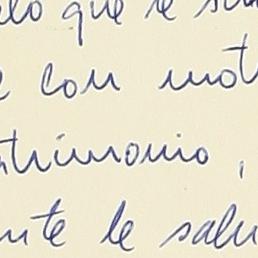 lo que le
con mot
trimonio,
nte le salu